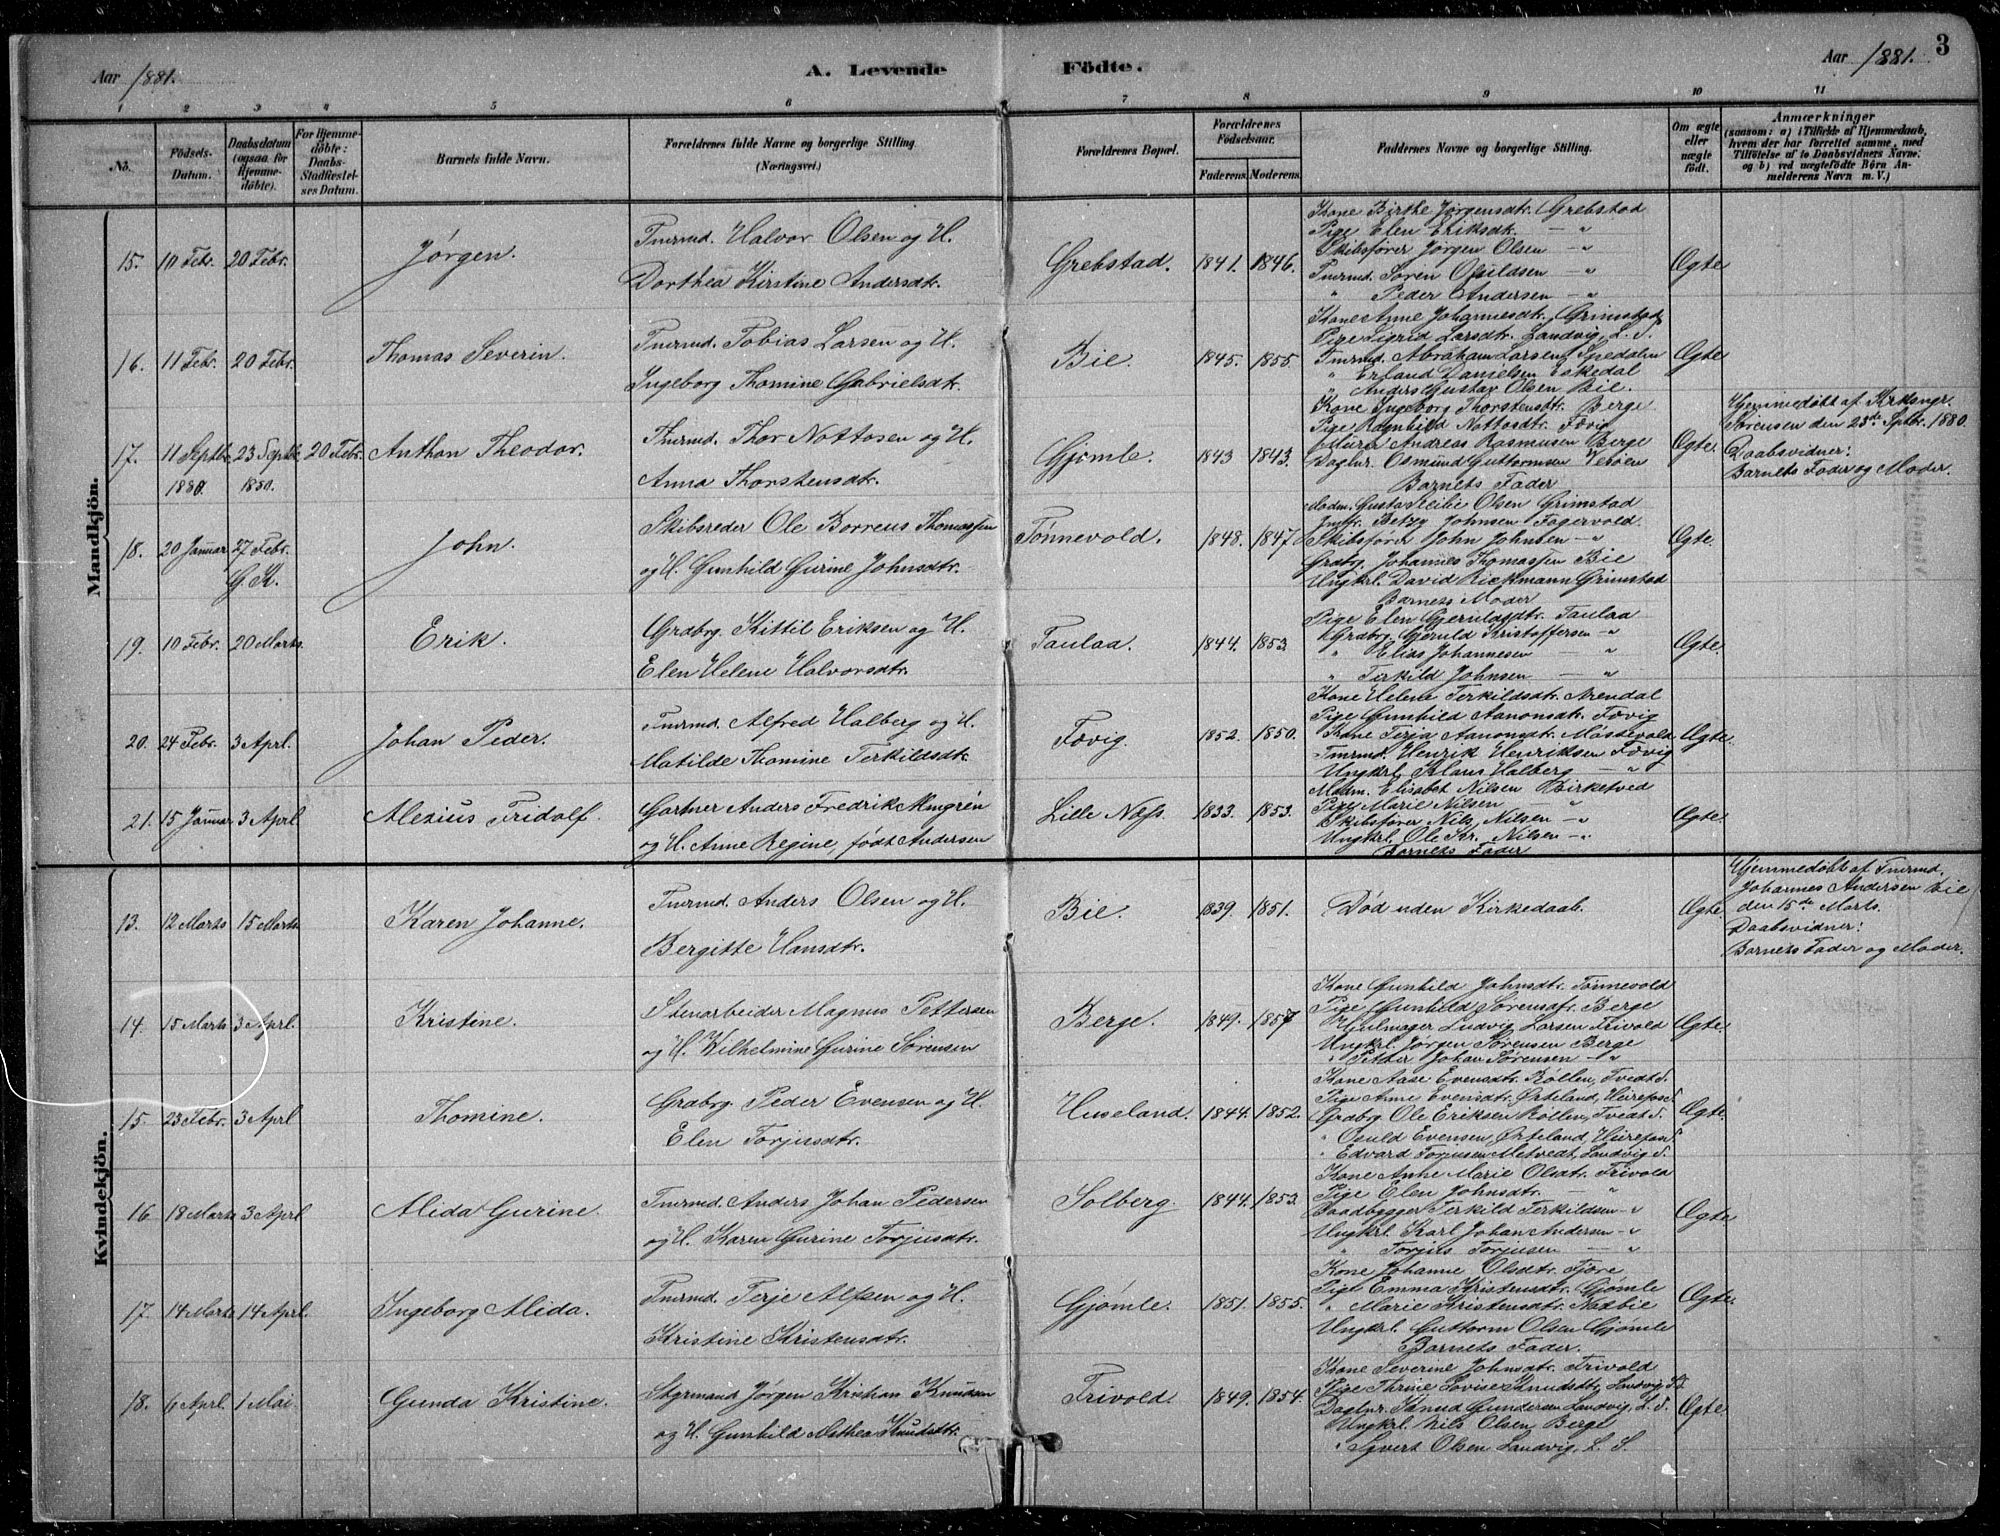 Aar 1881.
A. Levende Födte.
Aar 1881.
3
1 2 3 4 5 6 7 8 9 10 11
No.
Födsels-Datum.
Daabsdatum (ogsaa for Hjemmedöbte).
For Hjemmedöbte: Daabs-Stadfæstelses Datum.
Barnets fulde Navn.
Forældrenes fulde Navne og borgerlige Stilling (Næringsvei.)
Forældrenes Bopæl.
Forældrenes Födselsaar.
Faderens. Moderens.
Faddernes Navne og borgerlige Stilling.
Om ægte eller uægte födt.
Anmærkninger
(saasom: a) i Tilfælde af Hjemmedaab, hvem der har forrettet samme, med Tilföielse af to Daabsvidners Navne; og b) ved uægtefödte Börn Anmelderens Navn m. V.)
Mandkjön.
15. 10 Febr. 20 Febr.
Jørgen.
Tmrmd. Halvor Olsen og H.
Dorthea Kirstine Andersdtr.
Grebstad. 1841. 1846.
Kone Birthe Jørgensdtr. Grebstad
Pige Elen Eriksdtr. — "
Skibsfører Jørgen Olsen — "
Tmrmd. Søren Osuldsen — "
" Peder Andersen — "
Ægte
16. 11 Febr. 20 Febr.
Thomas Severin.
Tmrmd. Tobias Larsen og H.
Ingeborg Thomine Gabrielsdtr.
Bie. 1845. 1855.
Kone Anne Johannesdtr. Grimstad
Pige Sigrid Larsdtr. Landvig, L. S.
Tmrmd. Abraham Larsen, Spedalen
" Erland Danielsen Eskedal
" Anders Gustav Olsen Bie.
Ægte
17. 11 Septbr. 1880. 23 Septbr. 1880. 20 Febr.
Anthon Theodor.
Tmrmd. Thor Nottosen og H.
Anna Thorstensdtr.
Gjømle. 1843 1843.
Kone Ingeborg Thorstensdtr. Berge
Pige Ragnhild Nottosdtr. Fævig
Murer Andreas Rasmusen Berge
Daglnr. Osmund Guttormsen Vesøen
Barnets Fader
Ægte.
Hjemmedøbt af Kirkesngr.
Sørensen den 23de Septbr. 1880.
Daabsvidner:
Barnets Fader og Moder.
18. 20 Januar 27 Febr. G. K.
John.
Skibsreder Ole Borreus Thomassen
og H. Gunhild Gurine Johnsdtr.
Tønnevold. 1848. 1847.
Madm. Gusta Cecilie Olsen Grimstad
Jmfr. Betzy Johnsen Fagervold.
Skibsfører John Johnsen — "
Grdbrg. Johannes Thomassen Bie
Ungkrl. David Rickmann Grimstad
Barnets Moder
Ægte.
19. 10 Febr. 20 Marts.
Erik.
Grdbrg. Kittil Eriksen og H.
Elen Helene Halvorsdtr.
Taulaa. 1844. 1853
Pige Elen Gjeruldsdtr. Taulaa
Grdbrg. Gjeruld Kristoffersen — "
" Elias Johannesen — "
" Terkild Johnsen — "
Ægte.
20. 24 Febr. 3 Aprl.
Johan Peder.
Tmrmd. Alfred Halberg og H.
Matilde Thomine Terkildsdtr.
Fævig. 1852. 1850.
Kone Helene Terkildsdtr. Arendal
Pige Gunhild Aanonsdtr. Fævig
Kone Terja Aanonsdtr. Mostevold
Tmrmd. Henrik Henriksen Fævig
Ungkrl. Klaus Halberg "
Ægte.
21. 15 Januar 3 Aprl.
Alexius Fridolf.
Gartner Anders Fredrik Almgrén
og H. Anne Regine, født Andersen
Lille Næs. 1833. 1853.
Madm. Elisabet Nilsen Birketved
Pige Marie Nilsen — "
Skibsfører Nils Nilsen — "
Ungkrl. Ole Kr. Nilsen — "
Barnets Fader
Ægte.
Kvindekjön.
13. 12 Marts 15 Marts.
Karen Johanne.
Tmrmd. Anders Olsen og H.
Bergitte Hansdtr.
Bie. 1839. 1851.
Død uden Kirkedaab.
Ægte
Hjemmedøbt af Tmrmd.
Johannes Andersen Bie
den 15de Marts.
Daabsvidner:
Barnets Fader og Moder.
14. 15 Marts 3 Aprl.
Kristine.
Stenarbeider Magnus Pettersen
og H. Wilhelmine Gurine Sørensen
Berge. 1849. 1857
Kone Gunhild Johnsdtr. Tønnevold
Pige Gunhild Sørensdtr. Berge
Hjulmager Ludvig Larsen Trivold
Ungkrl. Jørgen Sørensen Berge
" Petter Johan Sørensen — "
Ægte.
15. 23 Febr. 3 Aprl
Thomine.
Grdbrg. Peder Evensen og H.
Elen Torjusdtr.
Huseland. 1844. 1852.
Kone Aase Evensdtr. Røllen, Tvedt S.
Pige Anne Evensdtr. Ørteland, Heirefos S.
Grdbrg. Ole Eriksen Røllen, Tvedt S.
" Osuld Evensen, Ørteland, Heirefos S
" Edvard Torjusen Metvedt, Landvig S.
Ægte.
16. 18 Marts 3 Aprl
Alida Gurine.
Tmrmd. Anders Johan Pedersen
og H. Karen Gurine Torjusdtr.
Solberg. 1844. 1853.
Kone Anne Marie Olsdtr. Trivold
Pige Elen Johnsdtr. — "
Baadbygger Terkild Terkildsen — "
Ungkrl. Karl Johan Andersen — "
" Torjus Torjusen — "
Ægte.
17. 14 Marts 14 Aprl.
Ingeborg Alida.
Tmrmd. Terje Alfsen og H.
Kristine Kristensdtr.
Gjømle. 1851. 1855.
Kone Johanne Olsdtr. Fjære
Pige Emma Kristensdtr. Gjømle
" Marie Kristensdtr. Næbbie
Ungkrl. Guttorm Olsen Gjømle
Barnets Fader.
Ægte.
18. 6 Aprl. 1 Mai.
Gunda Kristine.
Styrmand Jørgen Kristian Knudsen
og H. Gunhild Mathea Knudsdtr.
Trivold. 1849. 1854.
Kone Severine Johnsdtr. Trivold
Pige Thrine Lovise Knudsdtr. Landvig L. S.
Daglnr. Knud Gundersen Landvig, L. S.
Ungkrl. Nils Olsen Berge
" Syvert Olsen Landvig, L. S.
Ægte